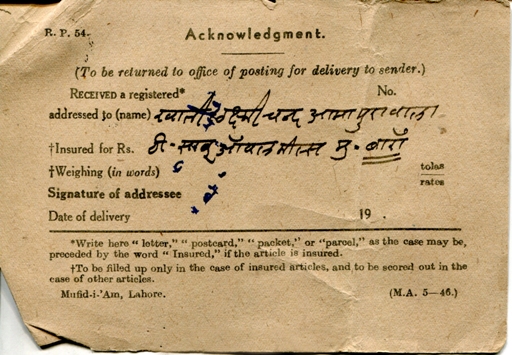 R. P. 54.
Acknowledgment.
(To be returned to office of posting for delivery to sender.)
RECEIVED a registered* No.
addressed to (name) चन्द
†Insured for Rs. मु - बाराँ
†Weighing (in words) tolas
rates
Signature of addressee
Date of delivery 19 .
*Write here “ letter,” “ postcard,” “ packet,” or “parcel,” as the case may be,
preceded by the word “ Insured,” if the article is insured.
†To be filled up only in the case of insured articles, and to be scored out in the
case of other articles.
Mufid-i-’Am, Lahore. (M.A. 5—46.)